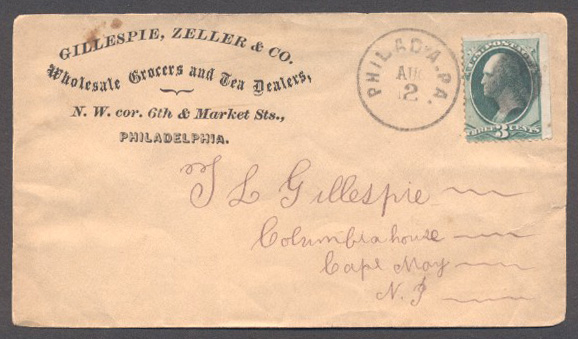 GILLESPIE, ZELLER & CO.
Wholesale Grocers and Tea Dealers,
N. W. cor. 6th & Market Sts.,
PHILADELPHIA.
PHILAD'A. PA.
AUG
12
THREE 3 CENTS
T L Gillespie
Columbia house
Cape May
N. J